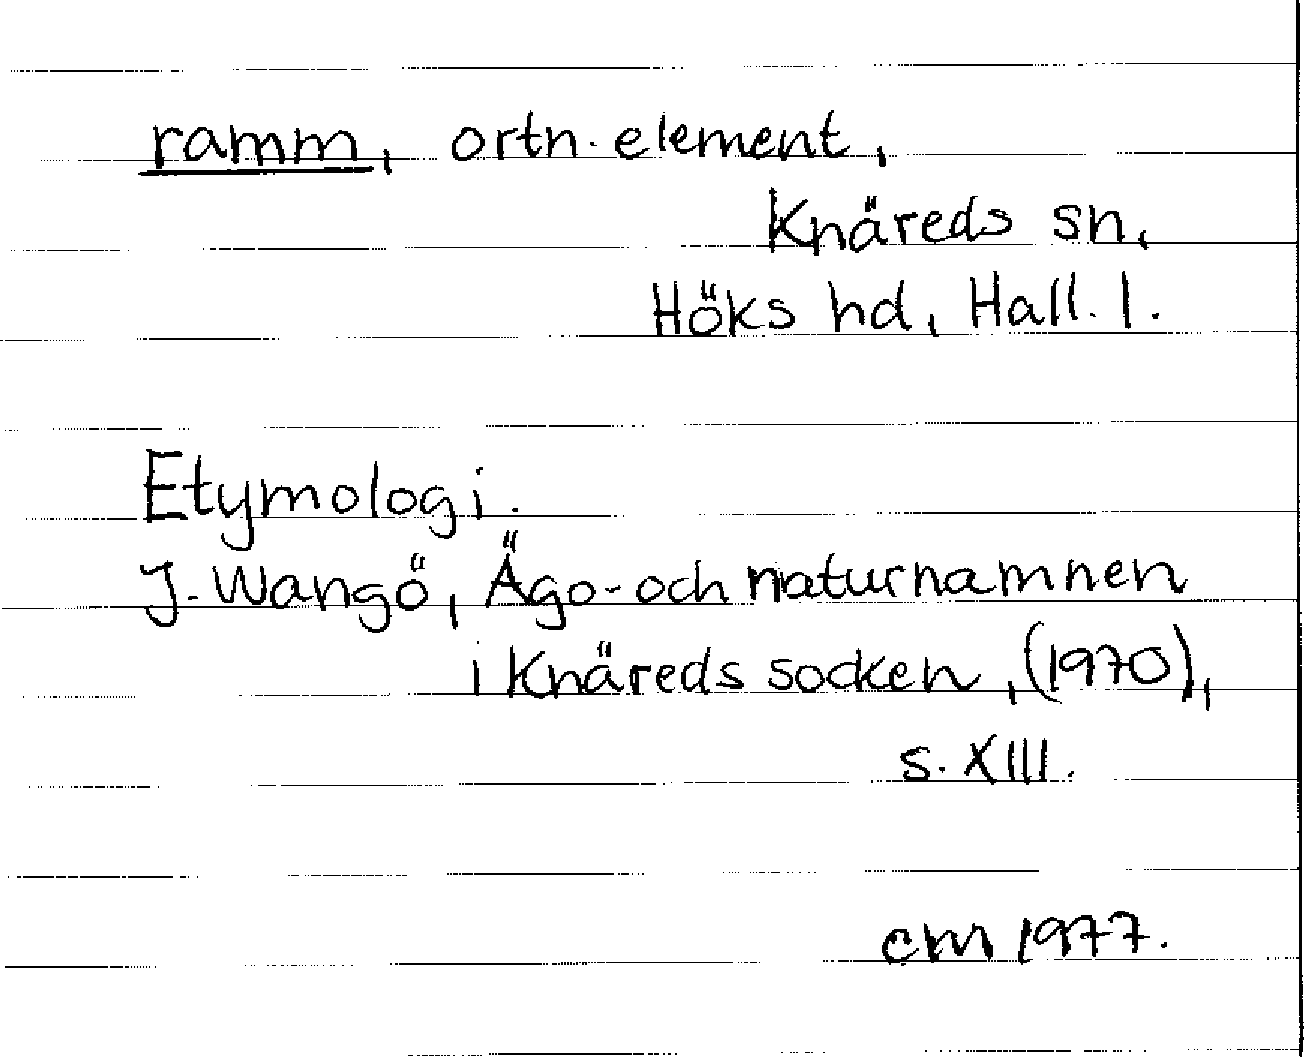 ramm, ortn. element,
Knäreds sn,
Höks hd, Hall. l.
Etymologi.
J. Wangö, Ägo- och naturnamnen
i Knäreds socken, (1970),
s. XIII.
cm 1977.